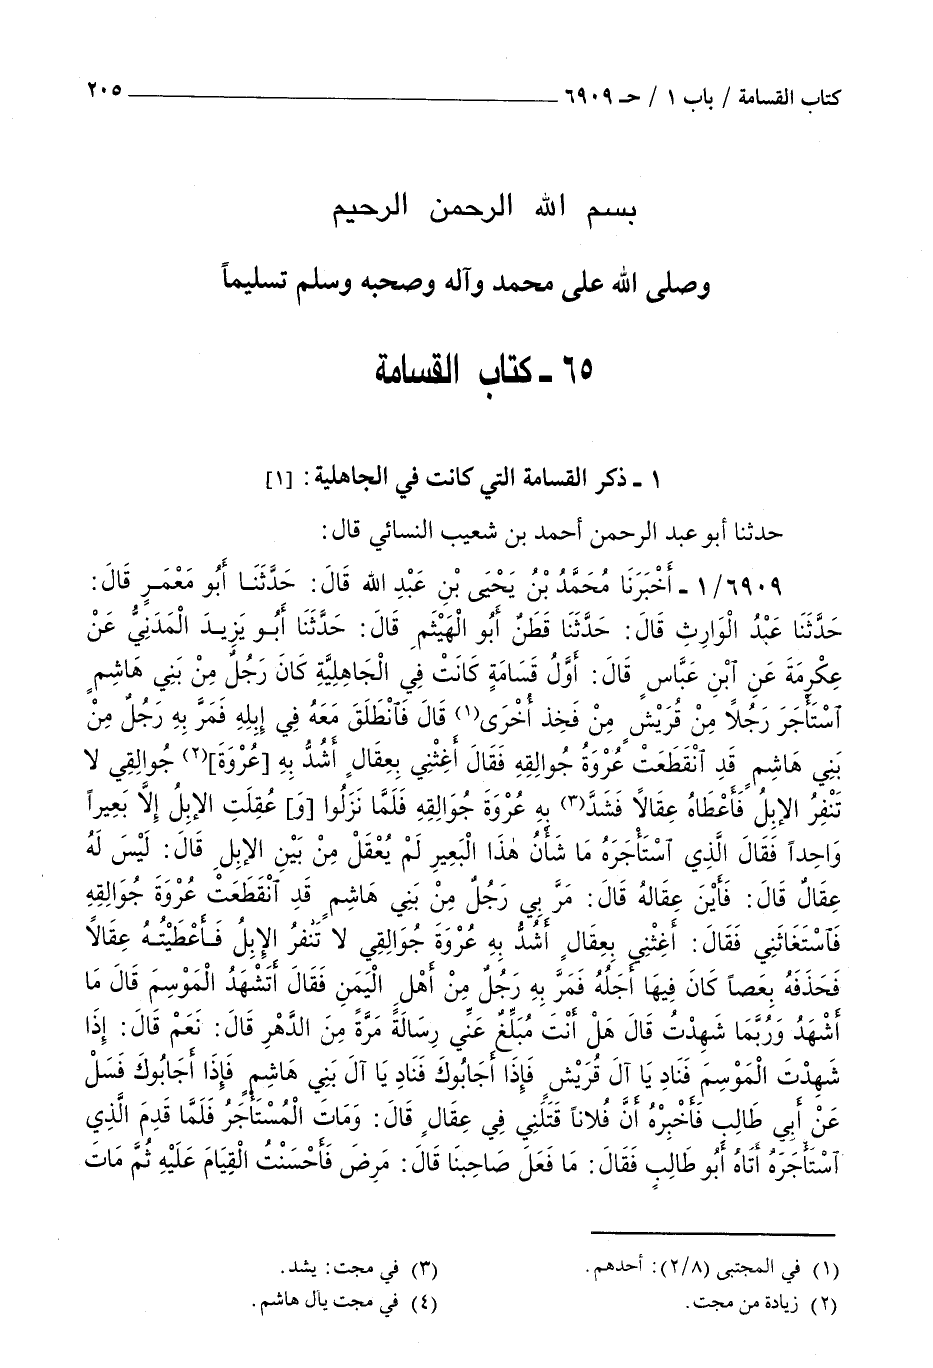 كتاب القسامة / باب ١ / حـ ٦٩٠٩ ــــــــــــ ٢٠٥
بسم الله الرحمن الرحيم
وصلى الله على محمد وآله وصحبه وسلم تسليماً
٦٥ ـ كتاب القسامة
١ ـ ذكر القسامة التي كانت في الجاهلية : [١]
حدثنا أبو عبد الرحمن أحمد بن شعيب النسائي قال :
٦٩٠٩/ ١ ـ أَخْبَرَنَا مُحَمَّدُ بْنُ يَحْيَى بْنِ عَبْدِ الله قَالَ : حَدَّثَنَا أَبُو مَعْمَرٍ قَالَ :
حَدَّثَنَا عَبْدُ الْوَارِثِ قَالَ : حَدَّثَنَا قَطَنُ أَبُو الْهَيْثَمِ قَالَ : حَدَّثَنَا أَبُو يَزِيدَ الْمَدَنِيُّ عَنْ
عِكْرِمَةَ عَنِ ابْنِ عَبَّاسٍ قَالَ : أَوَّلُ قَسَامَةٍ كَانَتْ فِي الْجَاهِلِيَّةِ كَانَ رَجُلٌ مِنْ بَنِي هَاشِمٍ
اسْتَأْجَرَ رَجُلاً مِنْ قُرَيْشٍ مِنْ فَخِذِ أُخْرَى(١) قَالَ فَانْطَلَقَ مَعَهُ فِي إِبِلِهِ فَمَرَّ بِهِ رَجُلٌ مِنْ
بَنِي هَاشِمٍ قَدِ انْقَطَعَتْ عُرْوَةُ جُوالِقِهِ فَقَالَ أَغِثْنِي بِعِقَالٍ أَشُدُّ بِهِ [عُرْوَةَ](٢) جُوالِقِي لا
تَنْفِرُ الإِبِلُ فَأَعْطَاهُ عِقَالاً فَشَدَّ(٣) بِهِ عُرْوَةَ جُوَالِقِهِ فَلَمَّا نَزَلُوا [وَ] عُقِلَتِ الإِبِلُ إِلَّا بَعِيراً
وَاحِداً فَقَالَ الَّذِي اسْتَأْجَرَهُ مَا شَأْنُ هٰذَا الْبَعِيرِ لَمْ يُعْقَلْ مِنْ بَيْنِ الإِبِلِ قَالَ : لَيْسَ لَهُ
عِقَالٌ قَالَ : فَأَيْنَ عِقَالُهُ قَالَ : مَرَّ بِي رَجُلٌ مِنْ بَنِي هَاشِمٍ قَدِ انْقَطَعَتْ عُرْوَةُ جُوَالِقِهِ
فَاسْتَغَاثَنِي فَقَالَ : أَغِثْنِي بِعِقَالٍ أَشُدُّ بِهِ عُرْوَةَ جُوَالِقِي لا تَنْفِرُ الإِبِلُ فَأَعْطَيْتُهُ عِقَالاً
فَحَذَفَهُ بِعَصاً كَانَ فِيهَا أَجَلُهُ فَمَرَّ بِهِ رَجُلٌ مِنْ أَهْلِ الْيَمَنِ فَقَالَ أَتَشْهَدُ الْمَوْسِمَ قَالَ مَا
أَشْهَدُ وَرُبَّمَا شَهِدْتُ قَالَ هَلْ أَنْتَ مُبَلِّغٌ عَنِّي رِسَالَةً مَرَّةً مِنَ الدَّهْرِ قَالَ : نَعَمْ قَالَ : إِذَا
شَهِدْتَ الْمَوْسِمَ فَنَادِ يَا آلَ قُرَيْشٍ فَإِذَا أَجَابُوكَ فَنَادِ يَا آلَ بَنِي هَاشِمٍ فَإِذَا أَجَابُوكَ فَسَلْ
عَنْ أَبِي طَالِبٍ فَأَخْبِرْهُ أَنَّ فُلاناً قَتَلَنِي فِي عِقَالٍ قَالَ : وَمَاتَ الْمُسْتَأْجَرُ فَلَمَّا قَدِمَ الَّذِي
اسْتَأْجَرَهُ أَتَاهُ أَبُو طَالِبٍ فَقَالَ : مَا فَعَلَ صَاحِبِنَا قَالَ : مَرِضَ فَأَحْسَنْتُ الْقِيَامَ عَلَيْهِ ثُمَّ مَاتَ
(١) في المجتبى (٢/٨) : أحدهم .
(٢) زيادة من مجت .
(٣) في مجت : يشد .
(٤) في مجت يال هاشم .